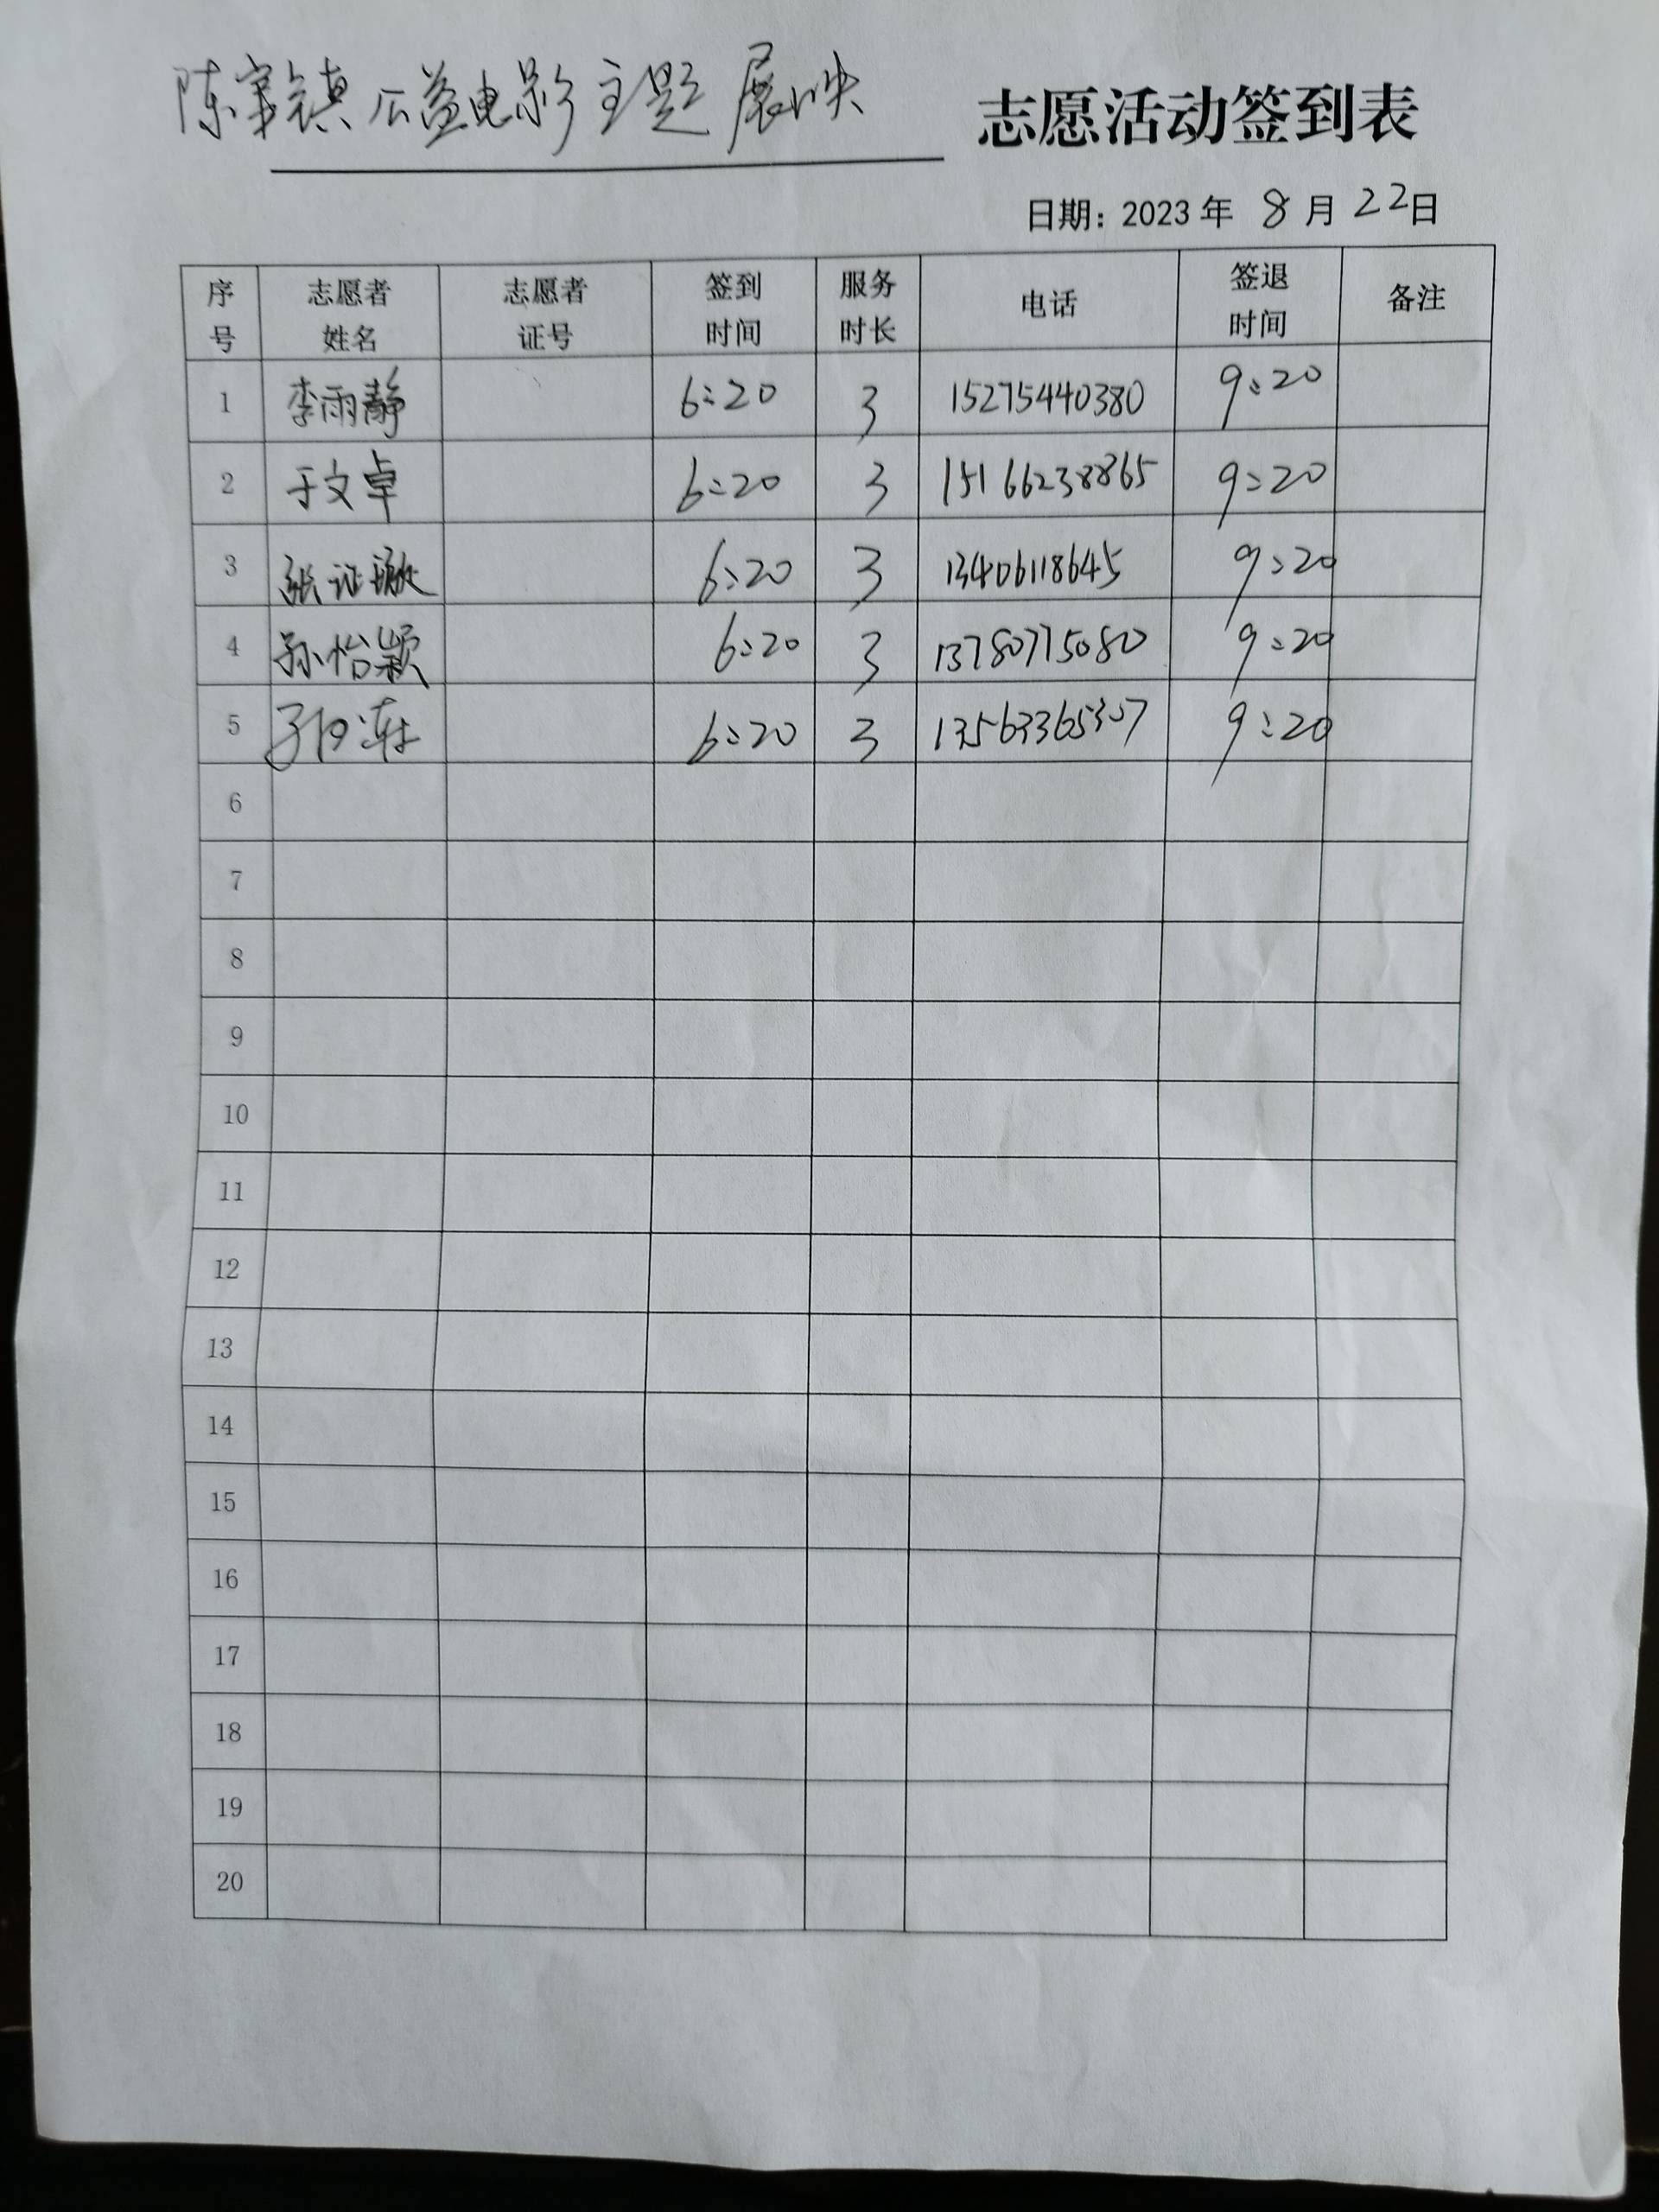 陈家镇公益电影主题展映 志愿活动签到表
日期：2023年 8 月 22日
序号 志愿者姓名 志愿者证号 签到时间 服务时长 电话 签退时间 备注
1 李雨静 6:20 3 15275440380 9:20
2 于文卓 6:20 3 15166238865 9:20
3 张证 6:20 3 13406118645 9:20
4 孙怡颖 6:20 3 13780775080 9:20
5 6:20 3 13563365307 9:20
6
7
8
9
10
11
12
13
14
15
16
17
18
19
20